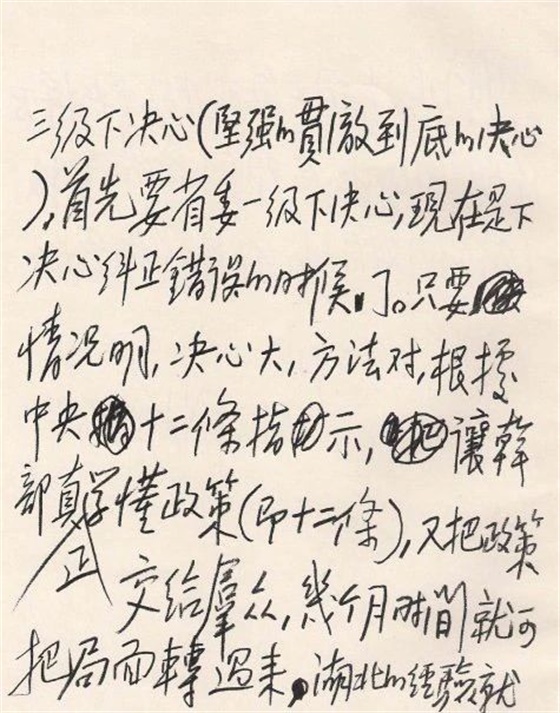 三级下决心(坚强的貫澈到底的决心
),首先要省委一级下决心,現在是下
决心纠正錯误的时候了。只要
情况明,决心大,方法对,根據
中央十二條指示,讓幹
部真正学懂政策(即十二條),又把政策
交给羣众,幾个月时间就可
把局面轉过来,湖北的经驗就